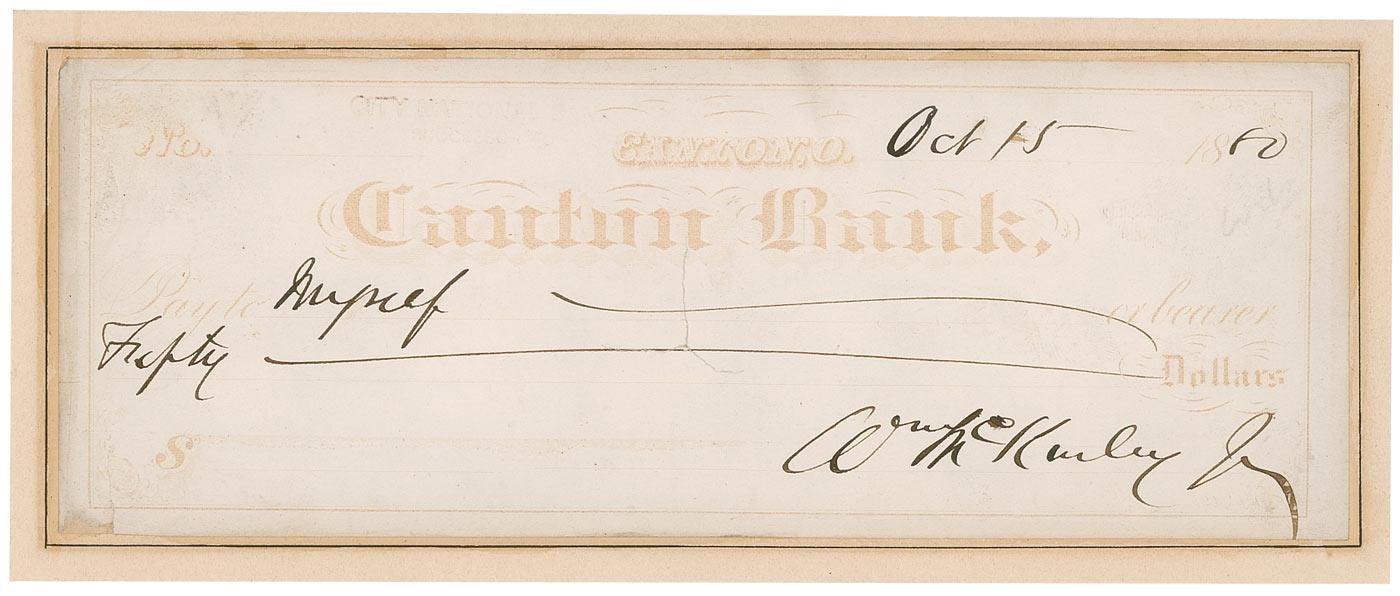 No. CANTON, O. Oct 15 1880
Canton Bank.
Pay to Myself or bearer
Fifty Dollars
$ Wm McKinley Jr